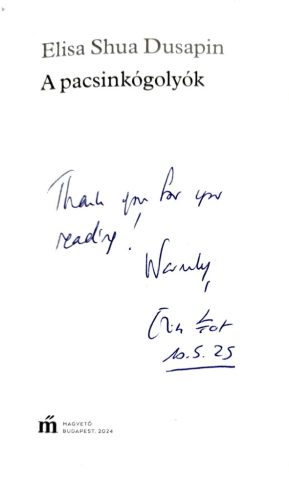 Elisa Shua Dusapin
A pacsinkógolyók
Thank you for your
reading!
Warmly,
10.5.25
MAGVETŐ
BUDAPEST, 2024